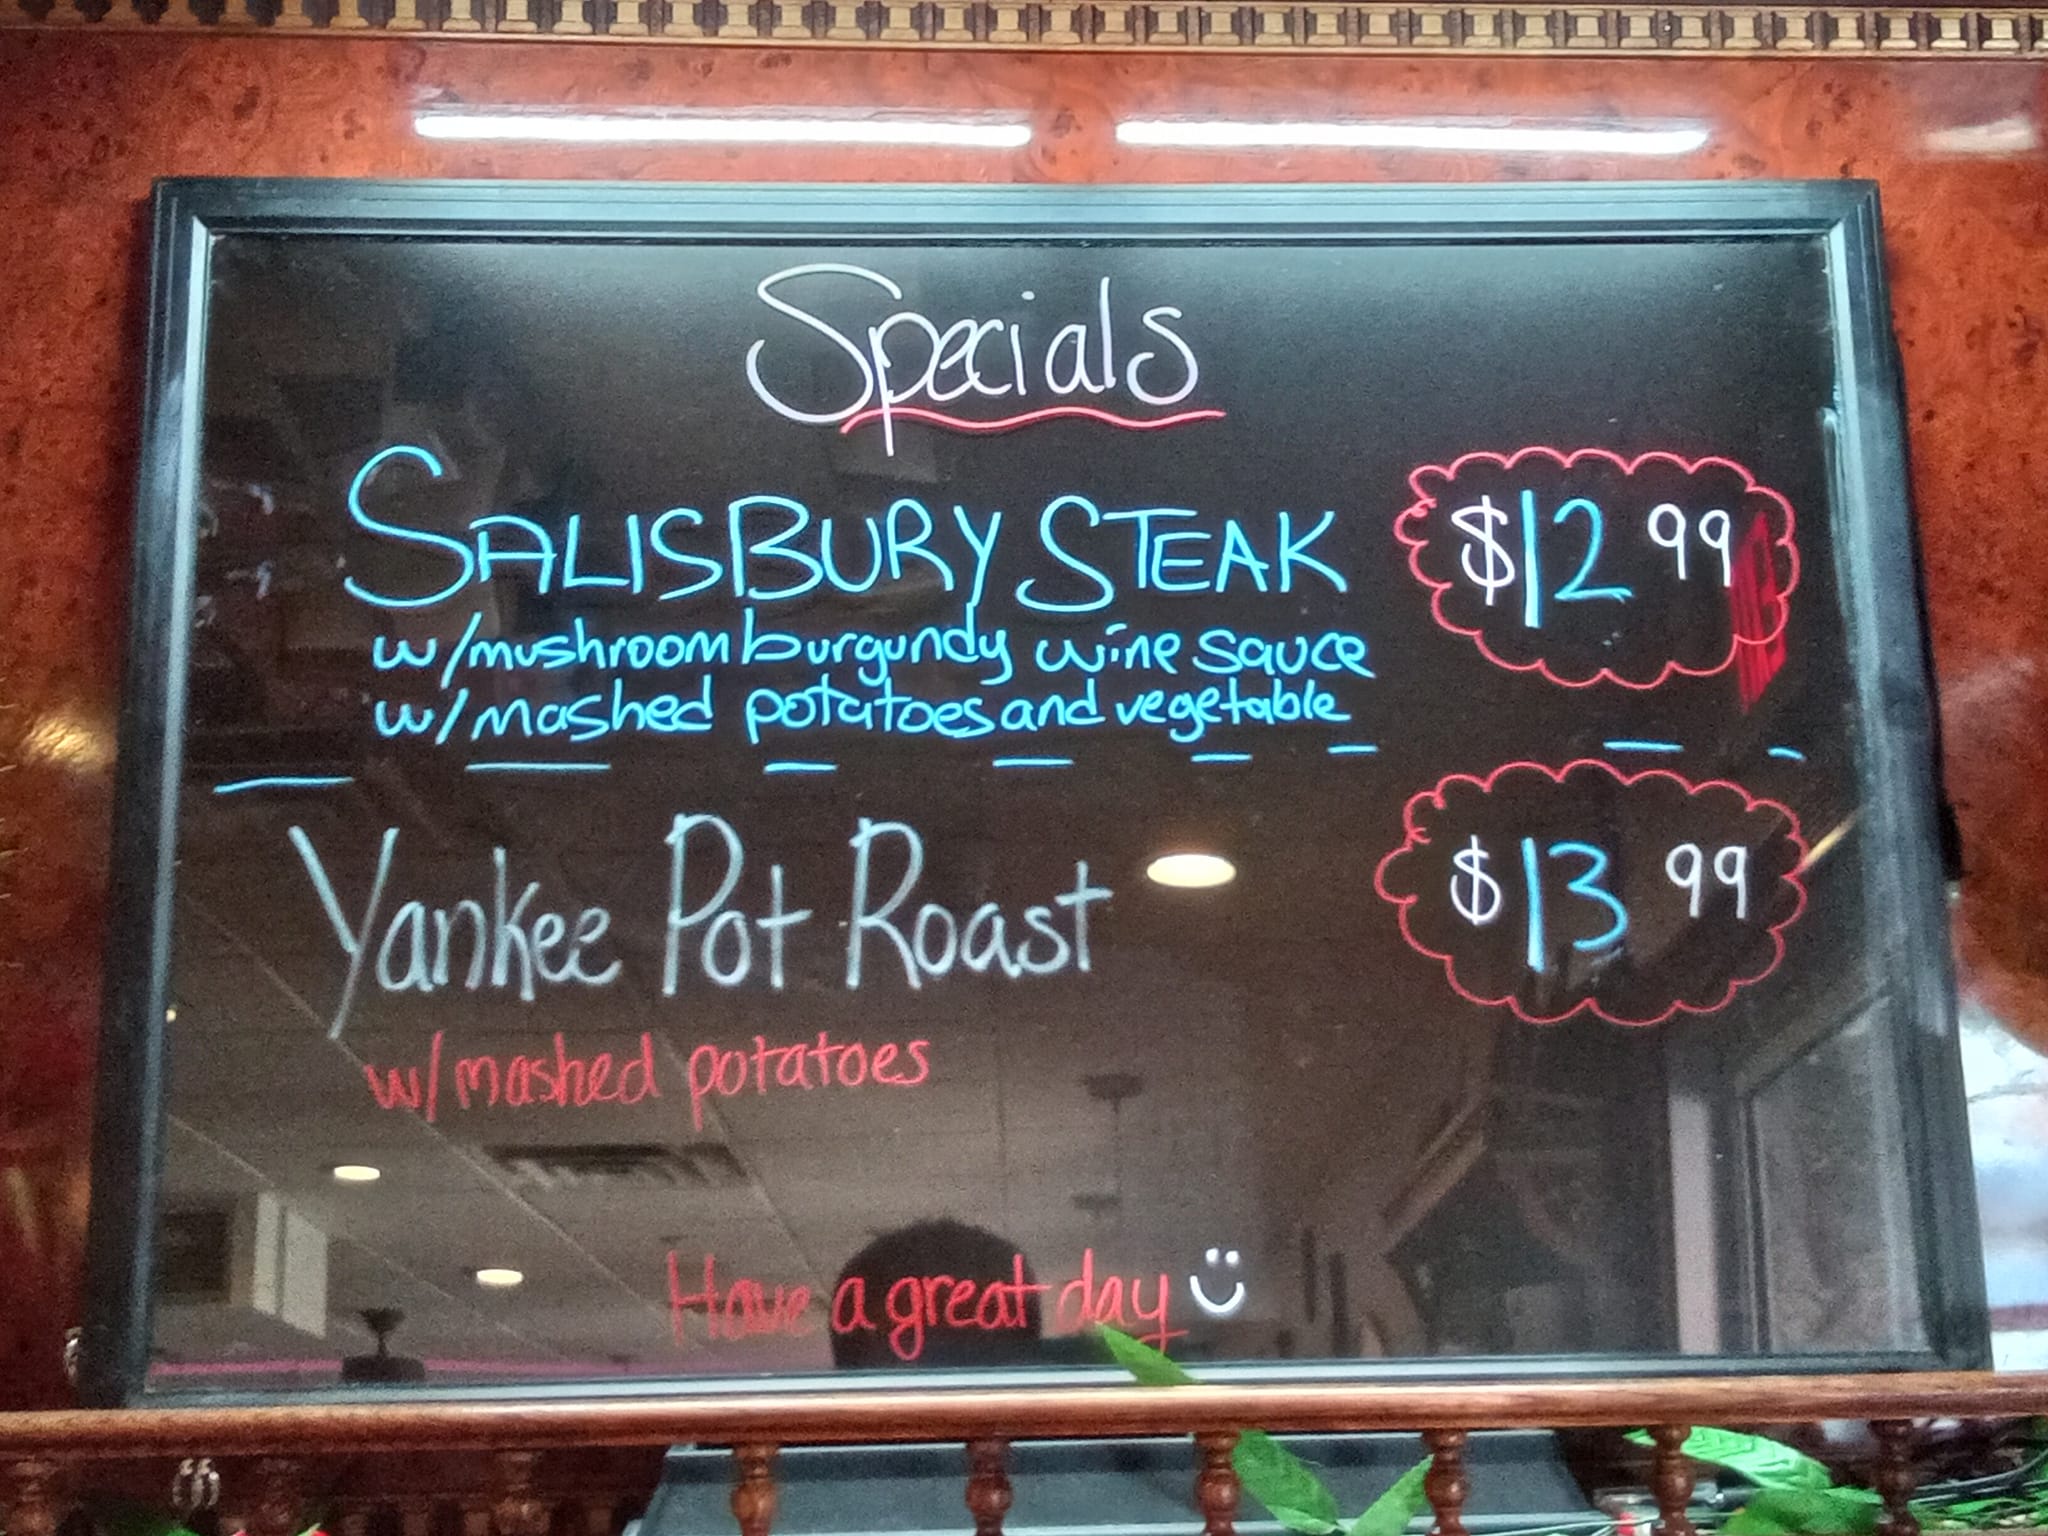 Specials
SALISBURY STEAK $12 99
w/mushroom burgundy wine sauce
w/mashed potatoes and vegetable
Yankee Pot Roast $13 99
w/mashed potatoes
Have a great day